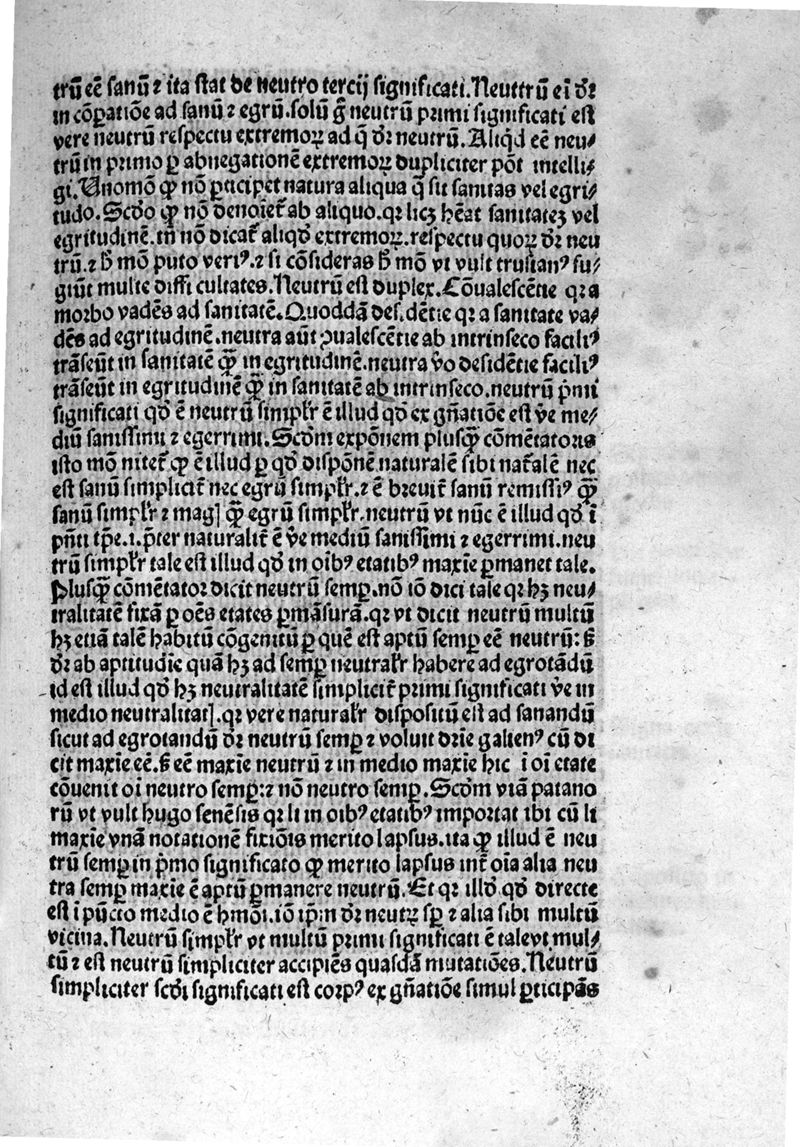 trũ eē sanũ ⁊ ita stat de neutro tercij significati. Neuttrũ ei̅ dr̃
in cõparatiõe ad sanũ ⁊ egrũ. solũ g̃ neutrũ primi significati est
vere neutrũ respectu extremoꝝ ad q̃ dr̃ neutrũ. Aliqd̃ eē neu⸗
trũ in primo ꝑ abnegationē extremoꝝ dupliciter põt intelli⸗
gi. Vnomõ ꝙ nõ ꝑticipet natura aliqua q̃ sit sanitas vel egri⸗
tudo. Scd̃o ꝙ nõ denoīet᷑ ab aliquo. qꝛ licꝫ hēat sanitateꝫ vel
egritudinē. tñ nõ dicat᷑ aliqd̃ extremoꝝ. respectu quoꝝ dr̃ neu
trũ. ⁊ h̃ mõ puto veriꝰ. ⁊ si cõsideras h̃ mõ vt vult trusianꝰ fu⸗
giũt multe diffi cultates. Neutrũ est duplex. Cõualescētie qꝛ a
morbo vadēs ad sanitatē. Quoddã des.dētie qꝛ a sanitate va⸗
dēs ad egritudinē. neutra aũt ꝯualescētie ab intrinseco faciliꝰ
trãseũt in sanitatē ꝙ̃ in egritudinē. neutra ṽo desidētie faciliꝰ
trãseũt in egritudinē ꝙ̃ in sanitatē ab intrinseco. neutrũ pm̃i
significati qd̃ ē neutrũ simplr̃ ē illud qd̃ ex gñatiõe est ṽe me⸗
diũ sanissimi ⁊ egerrimi. Scd̃m expõnem plusꝙ̃ cõmētatoris
isto mõ nitet᷑ ꝙ ē illud ꝑ qd̃ dispõnē naturalē sibi nat᷑alē nec
est sanũ simplicit᷑ nec egrũ simplr̃. ⁊ ē breuit᷑ sanũ remissiꝰ ꝙ̃
sanũ simplr̃ ⁊ mag̃ ꝙ̃ egrũ simplr̃. neutrũ vt nũc ē illud qd̃ ī
pñti tp̃e. i. pter naturalit᷑ ē ṽe mediũ sanissimi ⁊ egerrimi. neu
trũ simplr̃ tale est illud qd̃ in oībꝰ etatibꝰ maxīe ꝑmanet tale.
Plusꝙ̃ cõmētator dicit neutrũ semꝑ. nõ iõ dici tale qꝛ hꝫ neu⸗
tralitatē fixã ꝑ oēs etates ꝑmãsurã. qꝛ vt dicit neutrũ multũ
hꝫ etiã talē habitũ cõgenitũ ꝑ quē est aptũ semꝑ eē neutrũ: ẞ
dr̃ ab aptitudīe quã hꝫ ad semꝑ neutralr̃ habere ad egrotãdũ
id est illud qd̃ hꝫ neutralitatē simplicit᷑ primi significati ṽe in
medio neutralitat̃. qꝛ vere naturalr̃ dispositũ est ad sanandũ
sicut ad egrotandũ dr̃ neutrũ semꝑ ⁊ voluit drīe galienꝰ cũ di
cit maxīe eē. ẞ eē maxīe neutrũ ⁊ in medio maxīe hic ī oī etate
cõuenit oī neutro semꝑ: ⁊ nõ neutro semꝑ. Scd̃m viã patano
rũ vt vult hugo senēsis qꝛ li in oībꝰ etatibꝰ importat ibi cũ li
maxīe vnã notationē fixiõis merito lapsus. ita ꝙ illud ē neu
trũ semꝑ in pm̃o significato ꝙ merito lapsus int᷑ oīa alia neu
tra semꝑ maxīe ē aptũ ꝑmanere neutrũ. Et qꝛ illd̃ qd̃ directe
est ī pũcto medio ē hmõi. iõ ipm̃ dr̃ neutꝝ sꝑ ⁊ alia sibi multũ
vicina. Neutrũ simplr̃ vt multũ primi significati ē tale vt mul⸗
tũ ⁊ est neutrũ simpliciter accipiēs quasdã mutatiões. Neutrũ
simpliciter scd̃i significati est corpꝰ ex gñatiõe simul ꝑticipãs